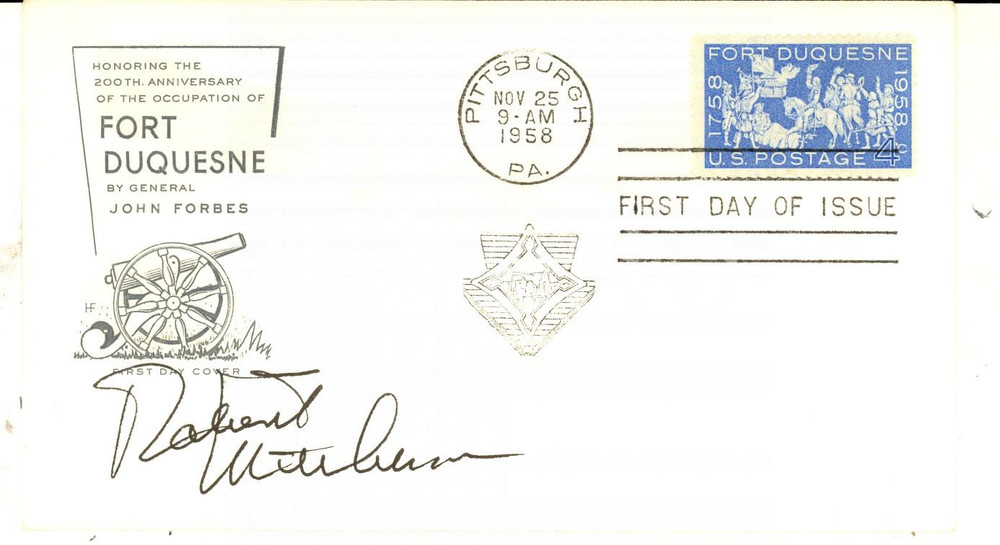 HONORING THE
200TH. ANNIVERSARY
OF THE OCCUPATION OF
FORT
DUQUESNE
BY GENERAL
JOHN FORBES
HF
FIRST DAY COVER
PITTSBURGH
NOV 25
9-AM
1958
PA.
FORT DUQUESNE
1758
1958
U.S. POSTAGE 4c
FIRST DAY OF ISSUE
Robert
Mitchum